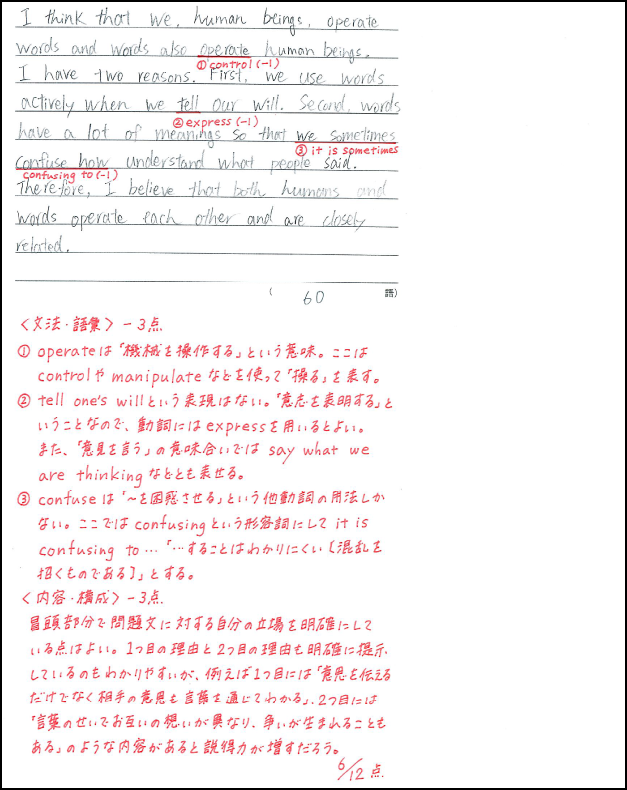 I think that we, human beings, operate
words and words also operate human beings.
①control(-1)
I have two reasons. First, we use words
actively when we tell our will. Second, words
②express(-1)
have a lot of meanings so that we sometimes
③it is sometimes
confuse how understand what people said.
confusing to(-1)
Therefore, I believe that both humans and
words operate each other and are closely
related.
( 60 語)
〈文法・語彙〉-3点
① operateは「機械を操作する」という意味。ここは
controlやmanipulateなどを使って「操る」を表す。
② tell one's willという表現はない。「意志を表明する」と
いうことなので、動詞にはexpressを用いるとよい。
また、「意見を言う」の意味合いでは say what we
are thinkingなどとも表せる。
③ confuseは「~を困惑させる」という他動詞の用法しか
ない。ここではconfusingという形容詞にして it is
confusing to…「…することはわかりにくい〔混乱を
招くものである〕」とする。
〈内容・構成〉-3点
冒頭部分で問題文に対する自分の立場を明確にして
いる点はよい。1つ目の理由と2つ目の理由も明確に提示
しているのもわかりやすいが、例えば1つ目には「意思を伝える
だけでなく相手の意思も言葉を通じてわかる」、2つ目には
「言葉のせいでお互いの想いが異なり、争いが生まれることも
ある」のような内容があると説得力が増すだろう。
6/12点